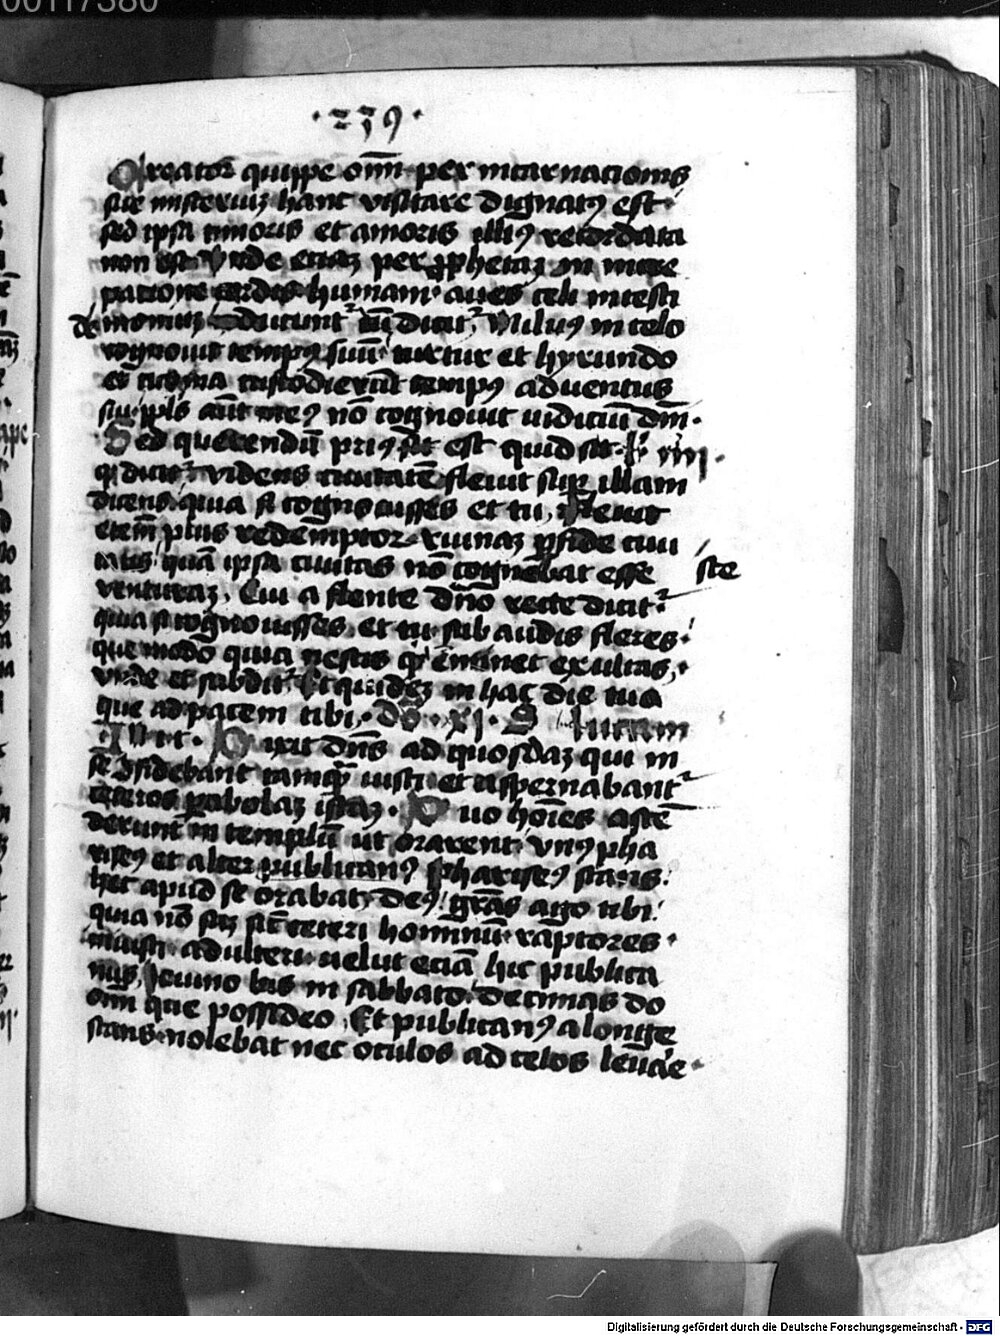 00117380
· 239 ·
Creator quippe om̄m per incarnacionis
sue misteriuȝ hanc visitare dignatꝰ est
sed ipsa timoris et amoris illiꝰ recordata
non est Vnde eciaȝ per ꝓphetaȝ in incre
pacione cordis humani aues celi in testi
de moniuȝ ducunt᷑ cū dicit᷑ Miluꝰ in celo
cognouit tempꝰ suū turtur et hyrundo
et ciconia custodierūt tempꝰ aduentus
sui pl̄s aūt meꝰ nō cognouit iudiciū dn̄i·
Sed querendū priꝰ est quid sit
qḋ dicit᷑ videns ciuitatē fleuit suꝑ illam
dicens quia si cognouisses et tu, fleuit
eteīm pius redemptor ruinaȝ ꝑfide ciui
tatis quā ipsa ciuitas nō cognoscebat esse ste
venturaȝ, Cui a flente dn̄o recte dicit᷑
quia si cognouisses et tu sub audis fleres·
que modo quia nescis qḋ iminet exultas,·
vnde et subdit᷑ Et quideȝ in hac die tua
que ad pacem tibi, do· xj· S lucam
Dixit dn̄s ad quosdaȝ qui in
se ꝯfidebant tamqȝ iusti et aspernabant᷑
ceteros ꝑabolaȝ istaȝ· Duo hoīes ascē
derunt in templū ut orarent vnꝰ pha
riseꝰ et alter publicanꝰ phariseꝰ stans
hec apud se orabat, deꝰ gr̄as ago tibi
quia nō suȝ sic̄ ceteri hominū raptores·
iniusti adulteri uelut eciā hic publica
nus, Ieiuno bis in sabbato decimas do
om̄i que possideo, Et publicanꝰ a longe
stans nolebat nec oculos ad celos leuare·
Digitalisierung gefördert durch die Deutsche Forschungsgemeinschaft - DFG